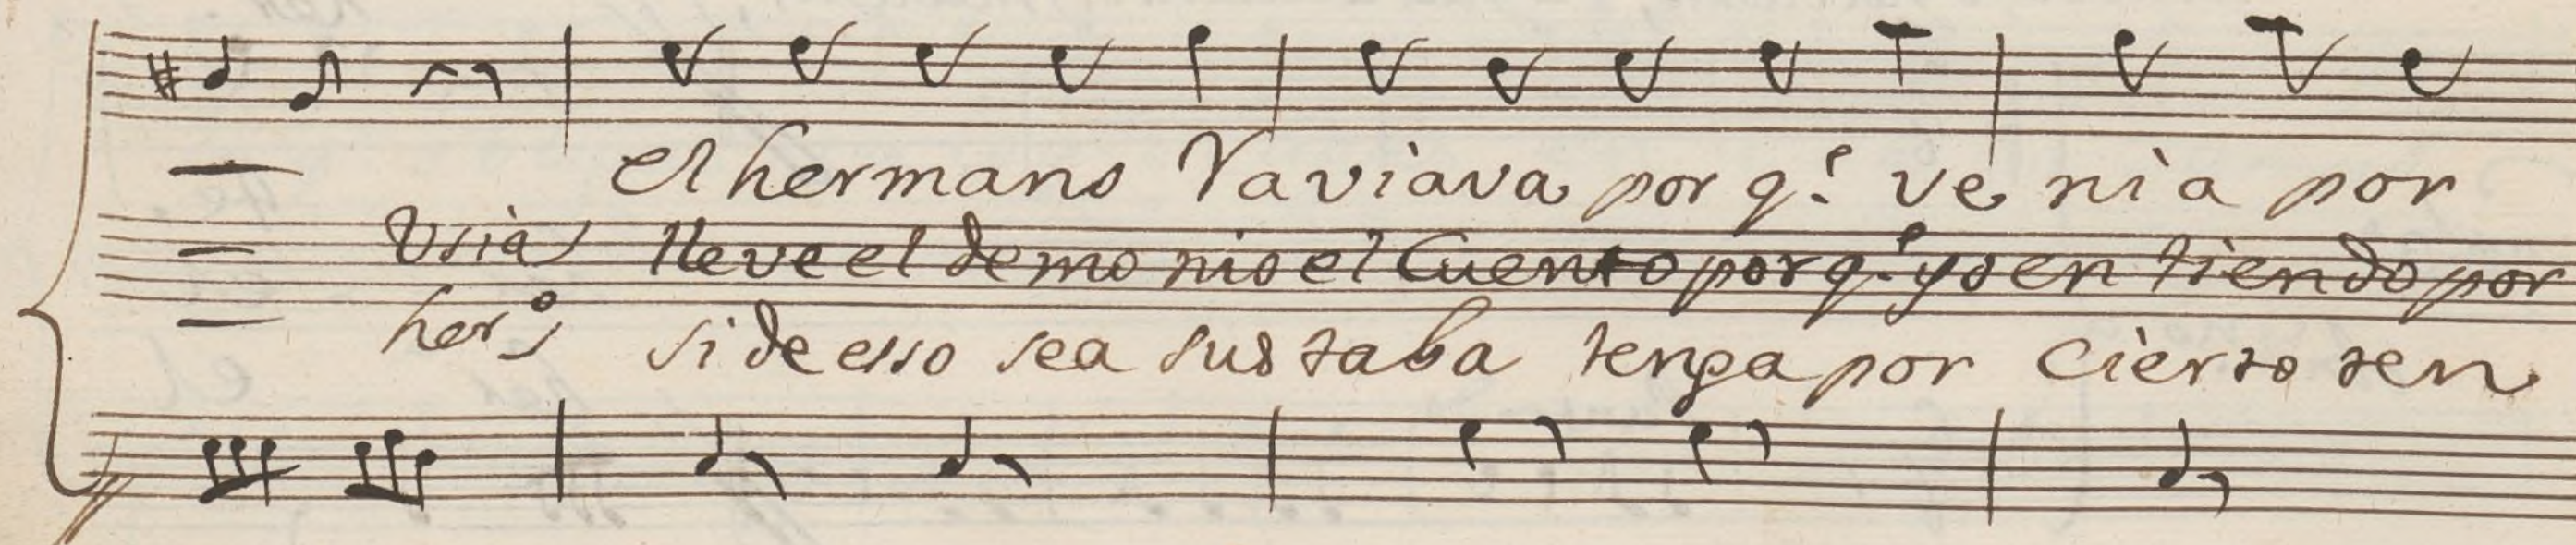 El hermano Raviava por q.e ve nia por
Usia lleve el demo nio el Cuento por q.e yo en tiendo por
her.o si de esso sea sus taba tenga por cierto ten